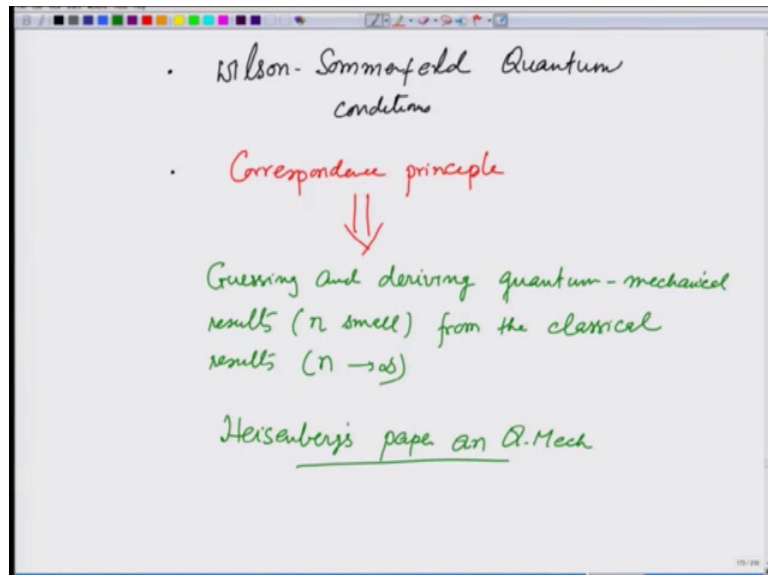 • Wilson-Sommerfeld Quantum
conditions
• Correspondence principle
Guessing and deriving quantum-mechanical
results (n small) from the classical
results (n → ∞)
Heisenberg's paper on Q.Mech